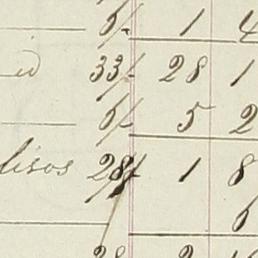 5/- 1 4
id 33/- 28 1
5/- 5 2
lisos 28/- 1 8
6
28 2